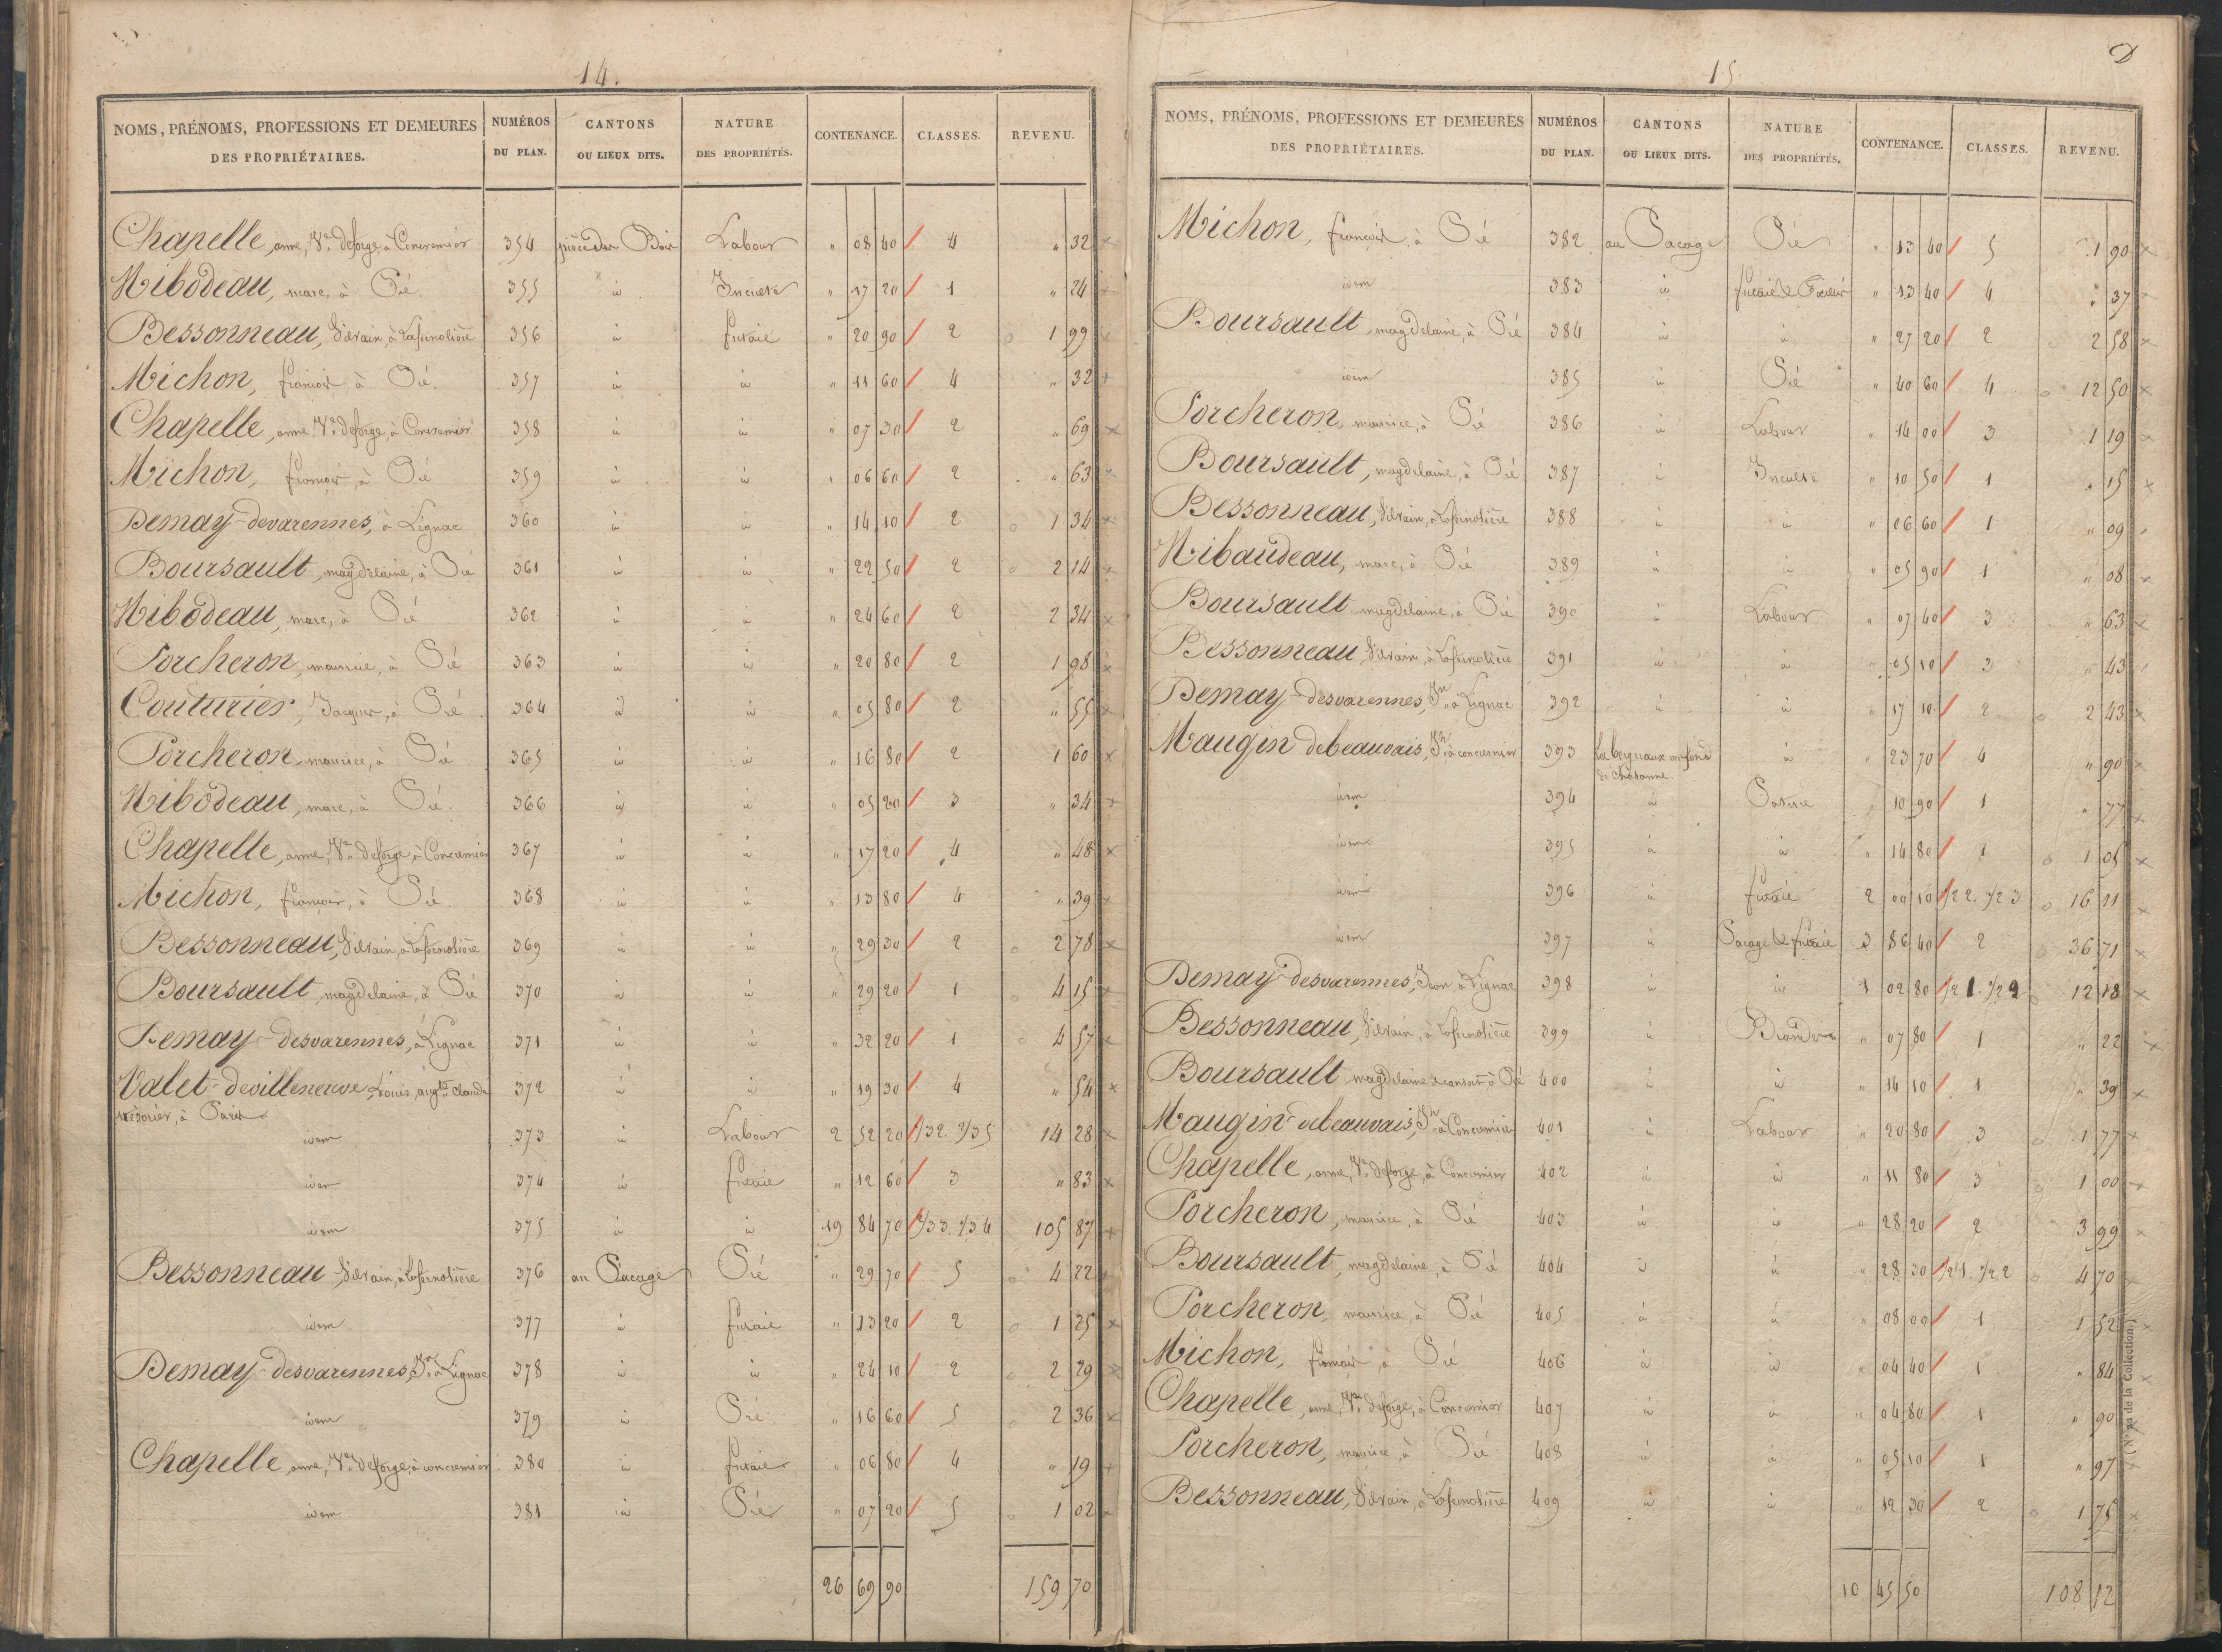 14.
NOMS, PRÉNOMS, PROFESSIONS ET DEMEURES DES PROPRIÉTAIRES. | NUMÉROS DU PLAN. | CANTONS OU LIEUX DITS. | NATURE DES PROPRIÉTÉS. | CONTENANCE. | CLASSES. | REVENU.
Chapelle, anne, Ve. Deforge, à Concremier 354 pièce des Bois Labour " 08 40 4 " 32
Nibodeau, marc, à Pié 355 id Inculte " 17 20 1 " 24
Bessonneau, Silvain, à Lafernolière 356 id futaie " 20 90 2 1 99
Michon, françois à Pié. 357 id id " 11 60 4 " 32
Chapelle, anne, Ve. Deforge, à Concremier 358 id id " 07 30 2 " 69
Michon, françois, à Pié 359 id id " 06 60 2 " 63
Demay-devarennes, à Lignac 360 id id " 14 10 2 1 34
Boursault, magdelaine, à Pié 361 id id " 22 50 2 2 14
Nibodeau, marc, à Pié 362 id id " 24 60 2 2 34
Porcheron, maurice, à Pié 363 id id " 20 80 2 1 98
Couturier, Jacques, à Pié 364 id id " 05 80 2 " 55
Porcheron, maurice, à Pié 365 id id " 16 80 2 1 60
Nibodeau, marc, à Pié. 366 id id " 05 20 3 " 34
Chapelle, anne, Ve. Deforge, à Concremier 367 id id " 17 20 4 " 48
Michon, françois, à Pié. 368 id id " 13 80 4 " 39
Bessonneau, Silvain, à Lafernolière 369 id id " 29 30 2 2 78
Boursault, magdelaine, à Pié 370 id id " 29 20 1 4 15
Demay-desvarennes, à Lignac 371 id id " 32 20 1 4 57
Valet-devilleneuve, Louis, augte. Claude 372 id id " 19 30 4 " 54
trésorier, à Paris
idem 373 id Labour 2 52 20 1/2 3 2. 1/2 3 5 14 28
idem 374 id futaie " 12 60 3 " 83
idem 375 id id 19 84 70 105 87
Bessonneau, Silvain, à Lafernolière 376 au Pacage Pré " 29 70 5 4 22
idem 377 id futaie " 13 20 2 1 25
Demay-desvarennes, Jn. à Lignac 378 id id " 24 10 2 2 29
idem 379 id Pré " 16 60 5 2 36
Chapelle, anne, Ve. Deforge, à concremier 380 id futaie " 06 80 4 " 19
idem 381 id Pré " 07 20 5 1 02
26 69 90 159 70
15
NOMS, PRÉNOMS, PROFESSIONS ET DEMEURES DES PROPRIÉTAIRES. | NUMÉROS DU PLAN. | CANTONS OU LIEUX DITS. | NATURE DES PROPRIÉTÉS. | CONTENANCE. | CLASSES. | REVENU.
Michon, françois, à Pié 382 au Pacage Pré " 13 40 5 1 90
idem 383 id futaie " 13 40 4 " 37
Boursault, magdelaine, à Pié 384 id id " 27 20 2 2 58
idem 385 id Pré " 40 60 4 12 50
Porcheron, maurice, à Pié 386 id Labour " 14 00 3 1 19
Boursault, magdelaine, à Pié 387 id Inculte " 10 50 1 " 15
Bessonneau, Silvain, à Lafernolière 388 id id " 06 60 1 " 09
Nibaudeau, marc, à Pié 389 id id " 05 90 1 " 08
Boursault, magdelaine, à Pié 390 id Labour " 07 40 3 " 63
Bessonneau, Silvain, à Lafernolière 391 id id " 05 10 3 " 43
Demay-desvarennes, Jn. à Lignac 392 id id " 17 10 2 2 43
Maugin debeauvais, Jh. à concremier 393 id " 23 70 4 " 90
idem 394 id Pature " 10 90 1 " 77
idem 395 id id " 14 80 1 1 05
idem 396 id futaie 2 00 10 1/2 2. 1/2 3 16 21
idem 397 id Pacage & futaie 3 86 40 2 36 71
Demay-desvarennes, Jean à Lignac 398 id id 1 02 80 12 18
Bessonneau, Silvain, à Lafernolière 399 id Brandes " 07 80 1 " 22
Boursault, magdelaine, à Pié 400 id id " 14 10 1 " 39
Maugin-debeauvais, Jh. à Concremier 401 id Labour " 20 80 3 1 77
Chapelle, anne, Ve. Deforge, à Concremier 402 id id " 11 80 3 1 00
Porcheron, maurice, à Pié 403 id id " 28 20 2 3 99
Boursault, magdelaine, à Pié 404 id id " 28 30 1/2 1. 1/2 2 4 70
Porcheron, maurice, à Pié 405 id id " 08 00 1 1 52
Michon, françois, à Pié 406 id id " 04 40 1 " 84
Chapelle, anne, Ve. Deforge, à Concremier 407 id id " 04 80 1 " 90
Porcheron, maurice, à Pié 408 id id " 05 10 1 " 97
Bessonneau, Silvain, à Lafernolière 409 id id " 12 30 2 1 75
10 45 50 108 12
de la Collection.)